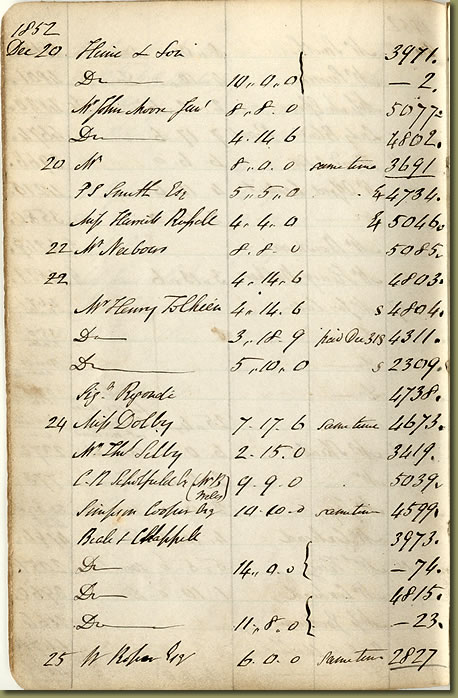 1852
Dec 20 Heine & Son 3971.
Do 10,,0,,0 } – 2.
Mr John Moore Junr 8,,8.0 5077.
Do 4.14.6 4802.
20 Mr 8,,0.0 same time 3691
PS Smith Esq 5,,5,,0 4734.
Miss Harriett Russell 4.4.0 5046.
22 Mr 8.8.0 5085.
22 4,,14,,6 4803.
Mr Henry 4,,14.6 s 4804.
Do 3,,18.9 paid Dec 31 s 4311.
Do 5,,10,,0 s 2309.
Sigr Regondi 4738.
24 Miss Dolby 7.17.6 same time 4673.
Mr Thos Selby 2.15.0 3419.
C.R Scholfield Esq 9.9.0 5039.
Simpson Cooper Esq 10.10.0 same time 4599.
Beale & Chappell 3973.
Do 14,,0.0 } – 74.
Do 4815.
Do 11,,8.0 } – 23.
25 W Roper Esq 6.0.0 same time 2827